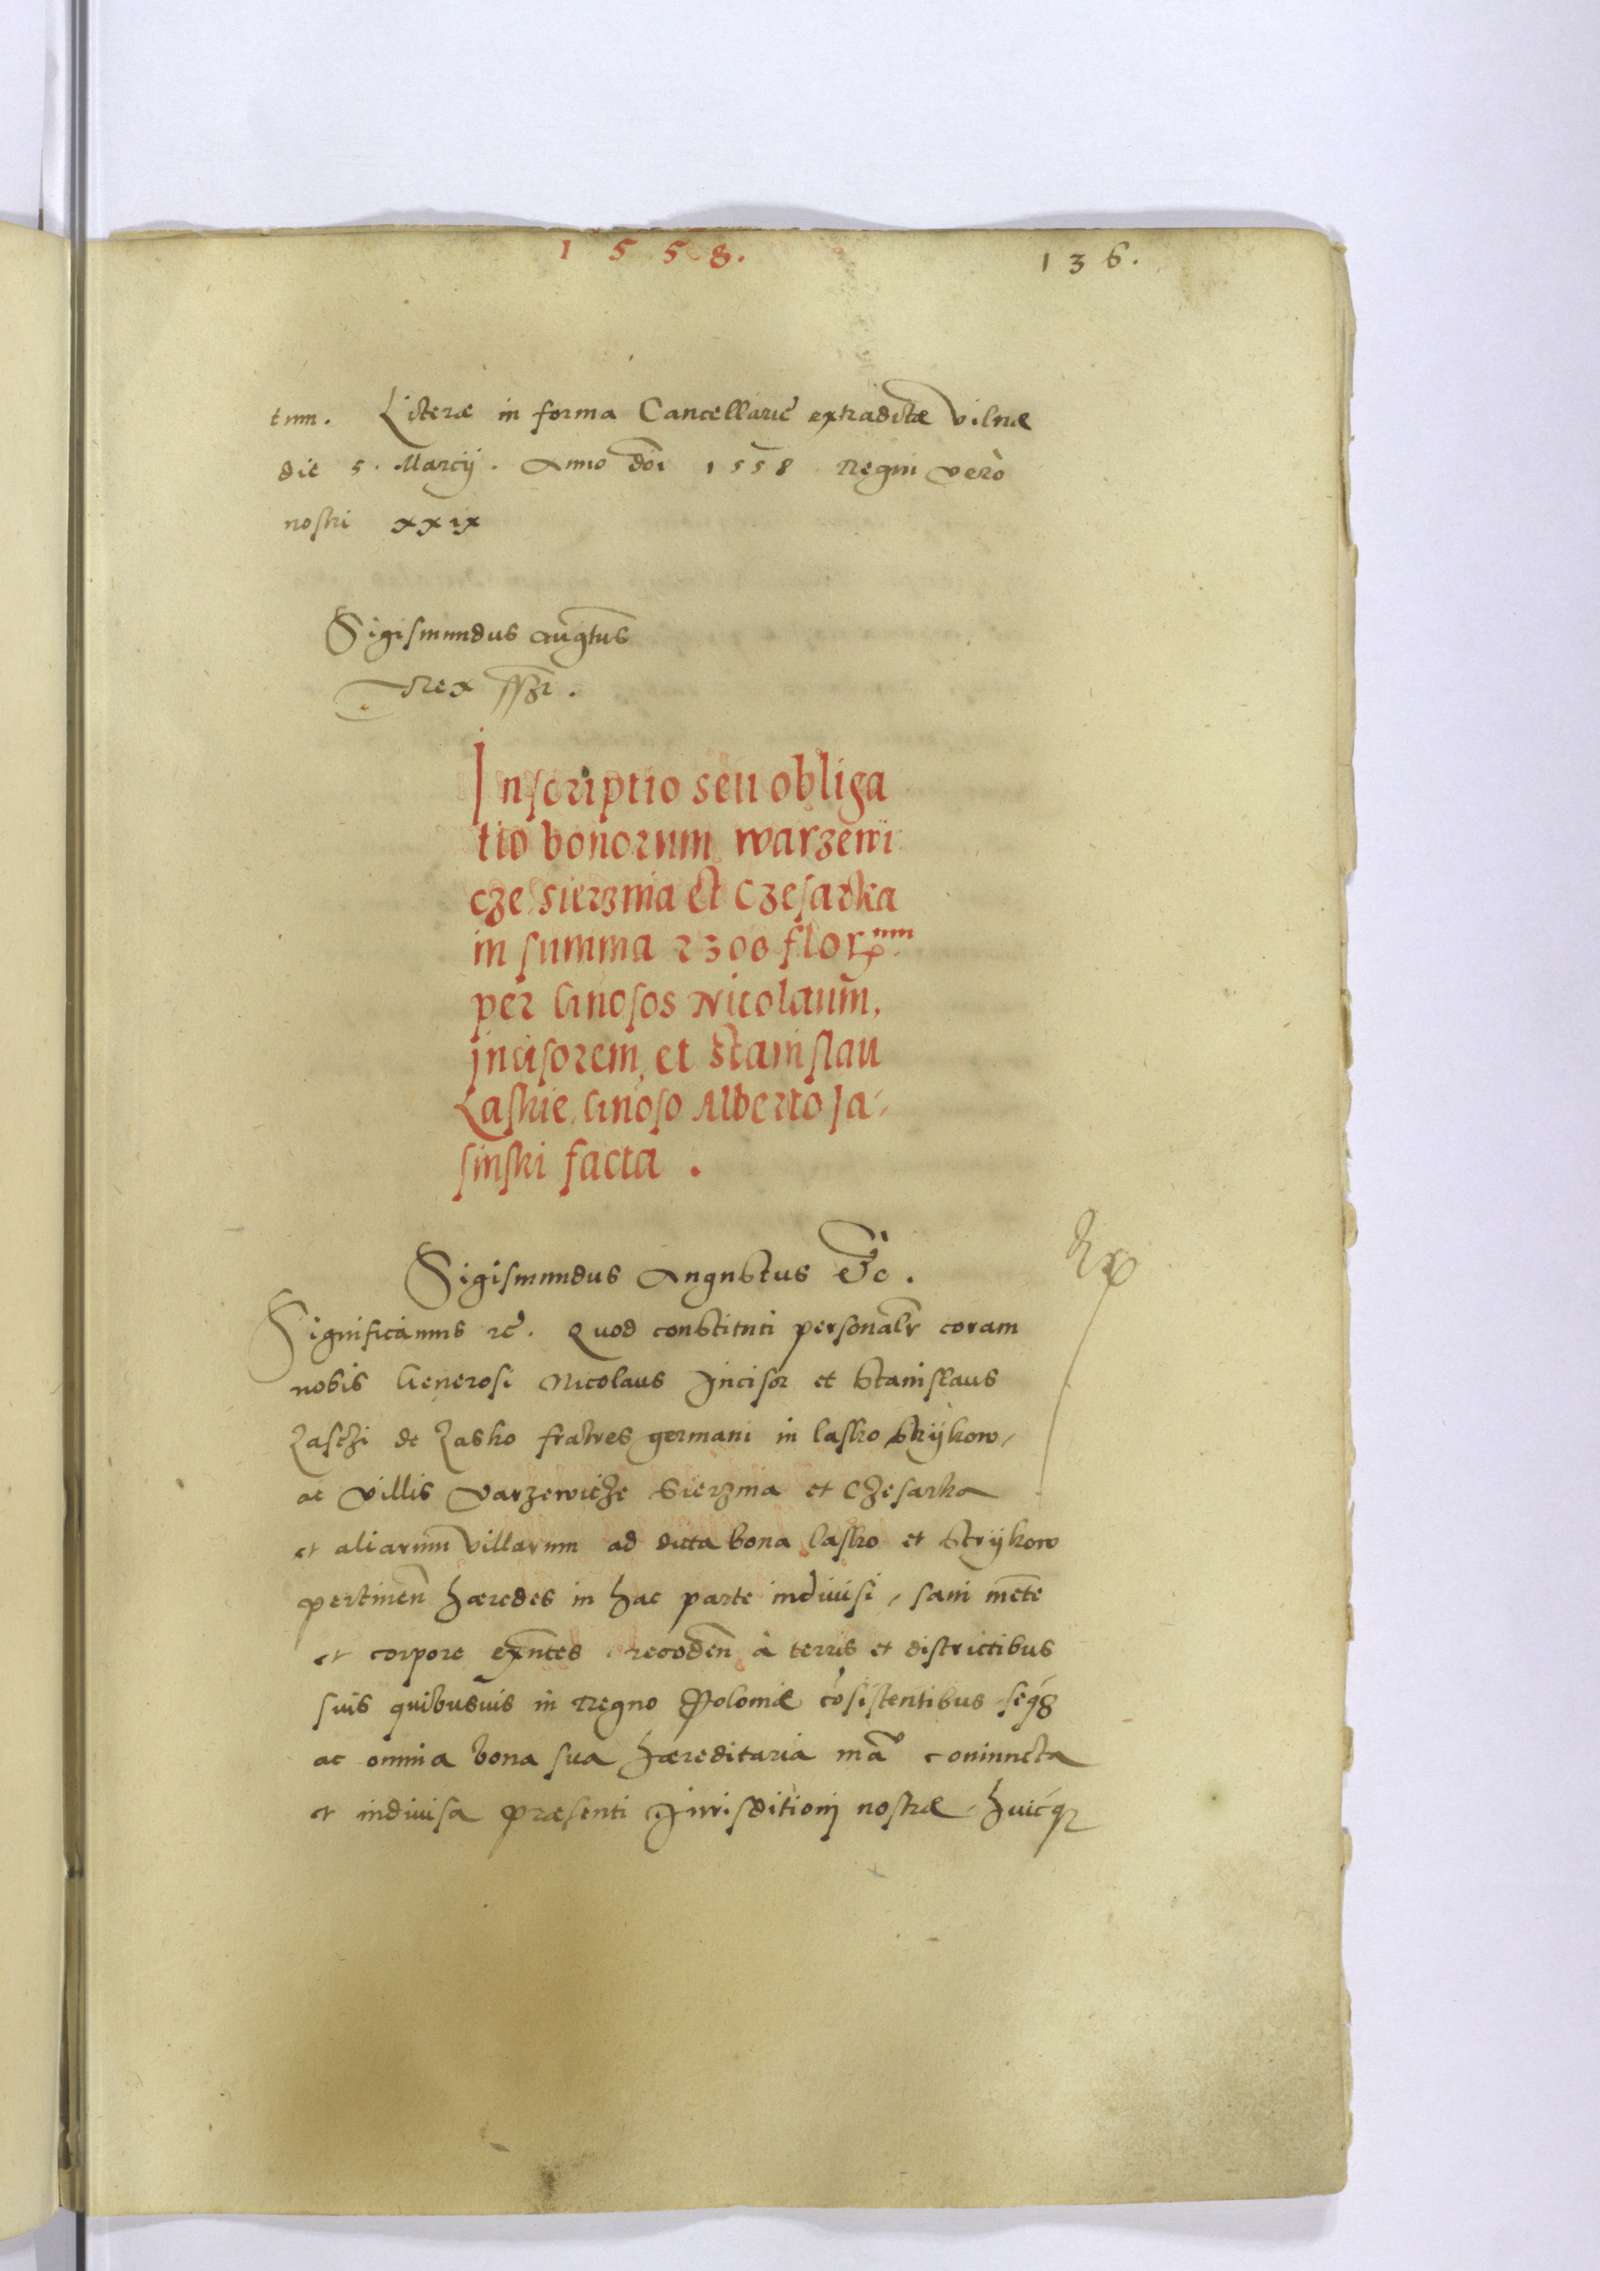 1558.
136.
tum. Literæ in forma Cancellarię extraditæ Vilnæ
die 5. Marcij. Anno dōi 1558 Regni verò
nostri xxix
Sigismundus Augtus
Rex sszt.
Inscriptio seu obliga
tio bonorum warzewi
cze Sierznia et Czesarka
in summa 2300 florum
per Gnosos Nicolaum,
incisorem, et Stanislau
Laskie Gnoso Alberto Ja-
sinski facta.
Sigismundus Augustus Etc.
Significamus etc. Quod constituti personalr coram
nobis Generosi Nicolaus Incisor et Stanislaus
Laschi de Lasko fratres germani in lassko Strijkow,
ac villis Varzewicze Sierznia et Czesarka
et aliarum villarum ad dicta bona lassko et Strijkow
pertinen hæredes in hac parte indiuisi, sani mēte
et corpore exntes recoden à terris et districtibus
suis quibusuis in Regno Poloniæ cōsistentibus seq́ȝ
ac omnia bona sua hæreditaria mā coniuncta
et indiuisa præsenti Jurisditionj nostræ huicq́ȝ